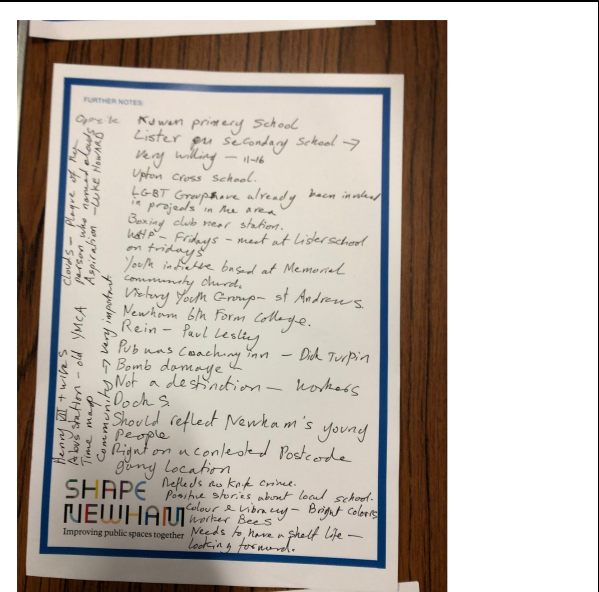 FURTHER NOTES:
Opposite Kuwen primary school
Lister en secondary school →
Very willing — 11-16
Upton Cross School.
LGBT Group have already been involved
in projects in the area
Boxing club near station.
- Fridays - meet at Lister school
on fridays
Youth initiative based at Memorial
community church.
Victory Youth Group - St Andrews.
Newham 6th Form College.
Rein - Paul Lesley
Pub was Coaching inn - Dick Turpin
Bomb damage -
Not a destination - workers
Docks.
Should reflect Newham's young
people
Right on a contested Postcode
gang location
Reflects no knife crime.
Positive stories about local school.
Colour & vibrancy - Bright colours
Worker Bees
Needs to have a shelf life -
looking forward.
Clouds - Plaque of the
person who named clouds
Aspiration - LUKE HOWARD
Henry VIII + wives
station - old YMCA
Time map
Community → very important
SHAPE
NEWHAM
Improving public spaces together